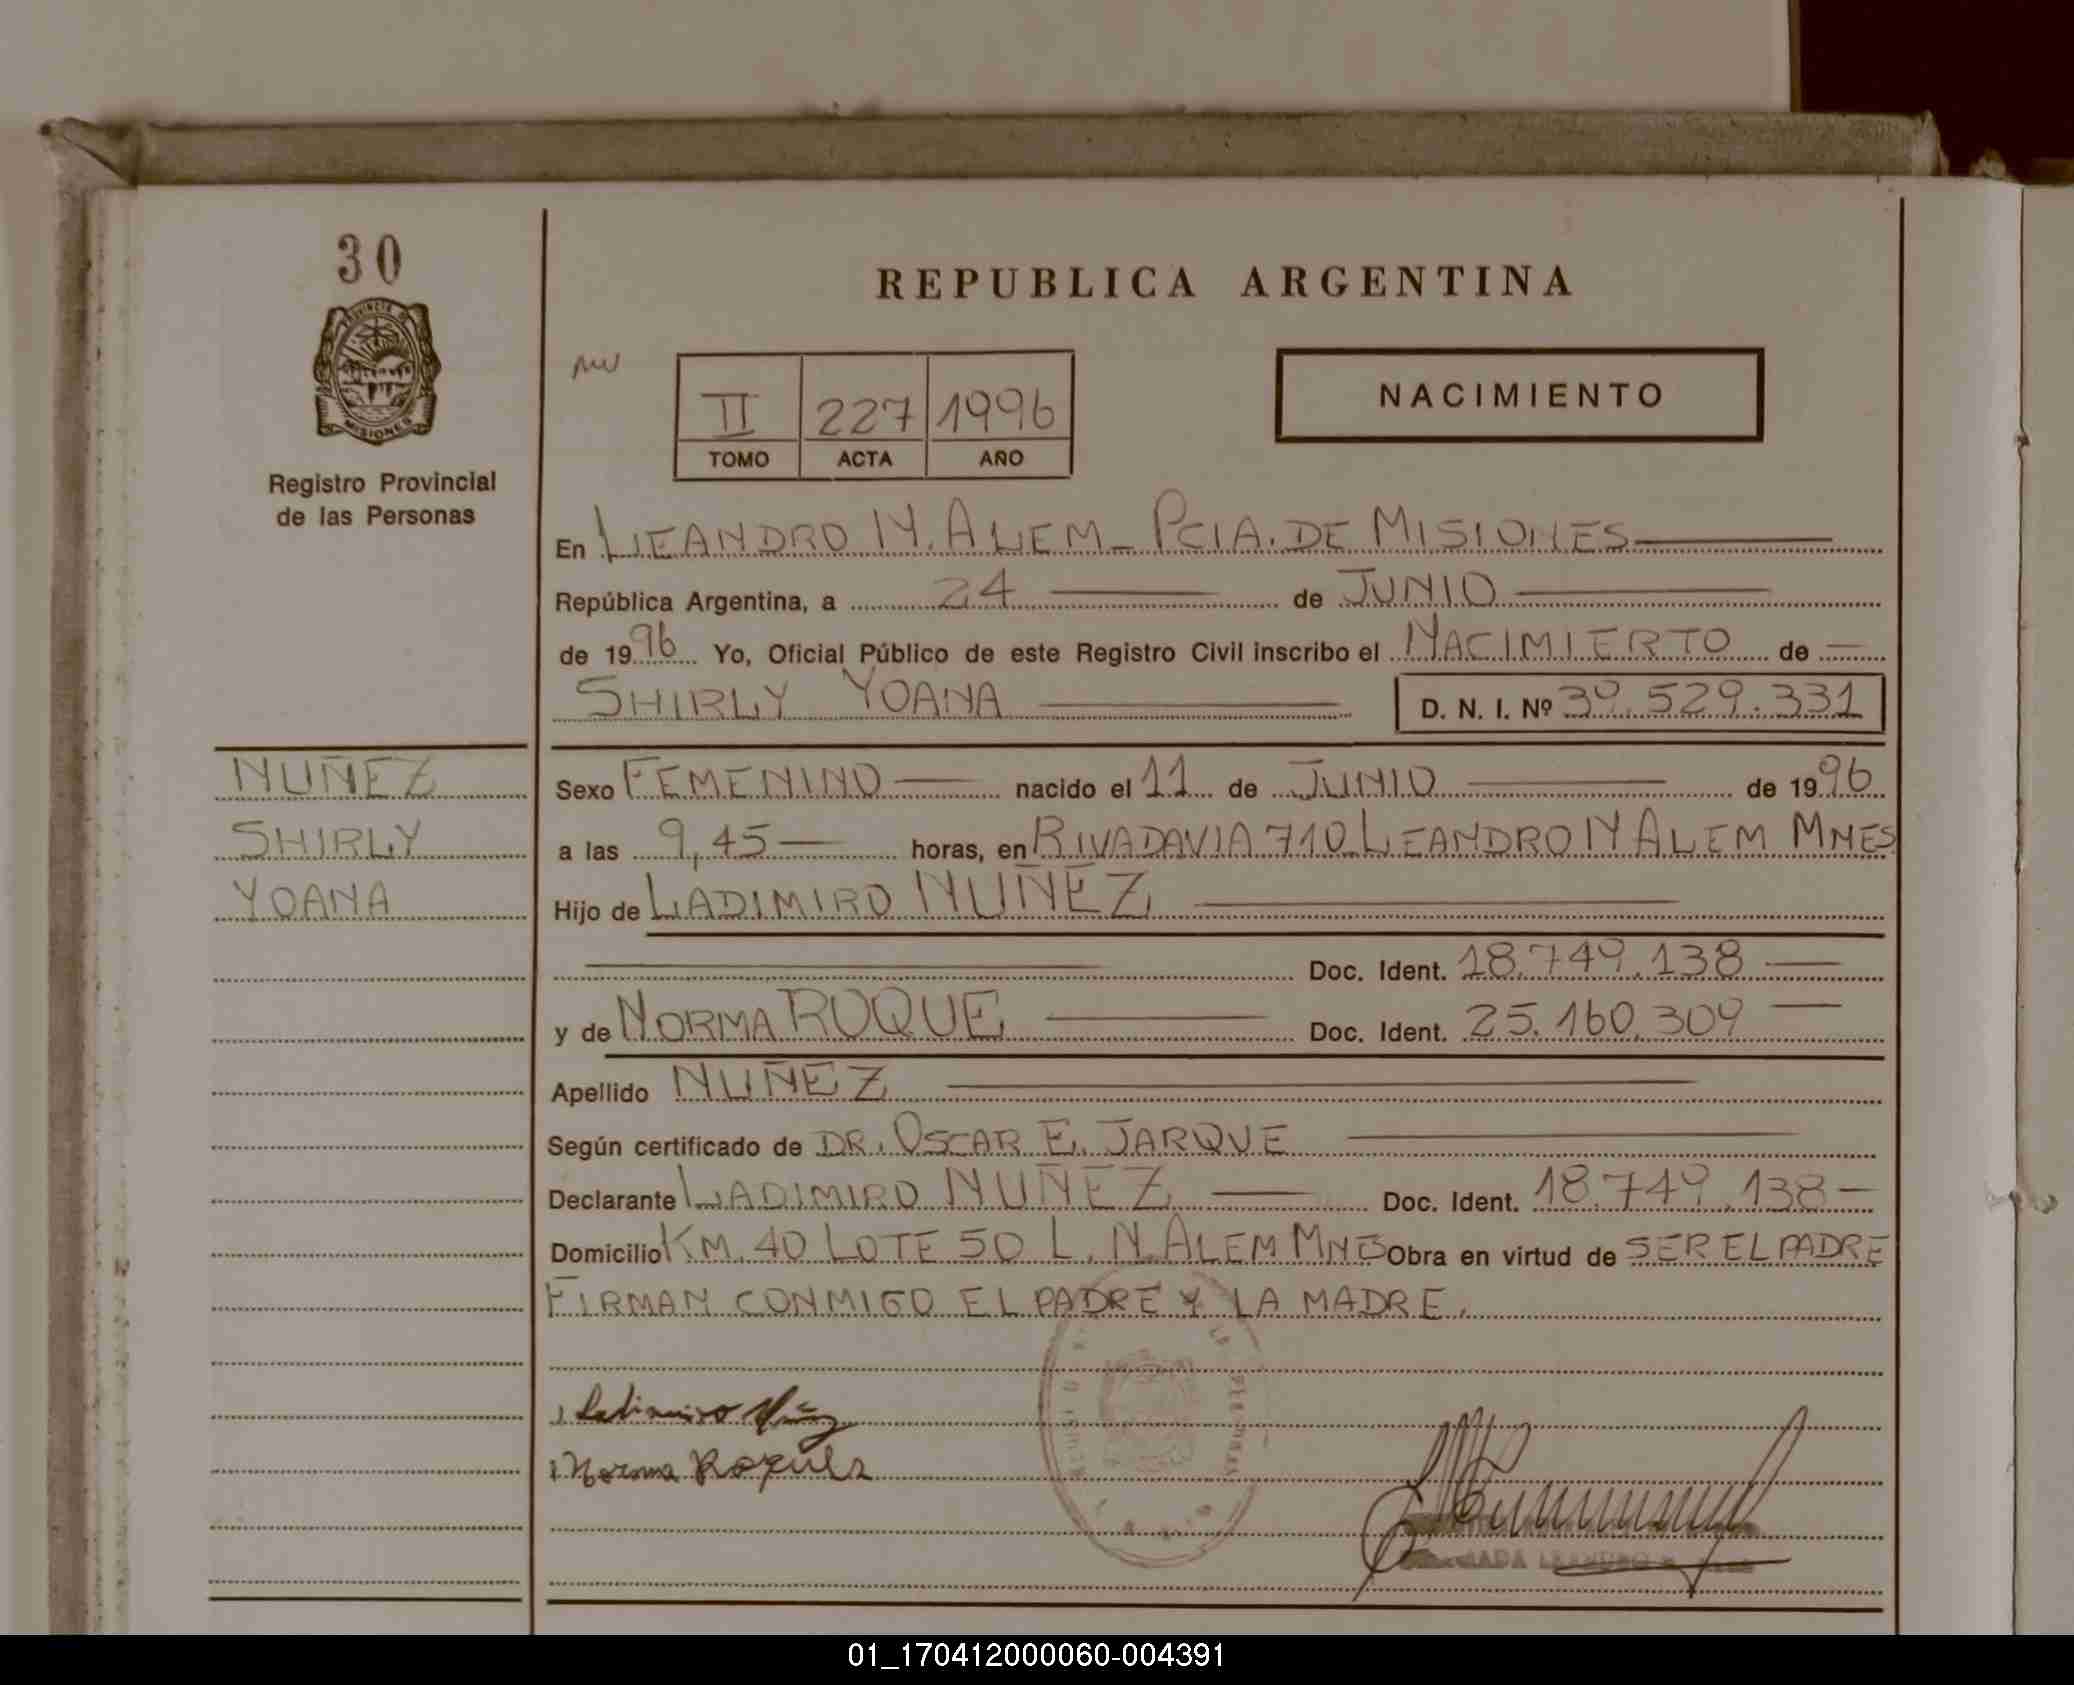 30
PROVINCIA DE
MISIONES
Registro Provincial
de las Personas
REPUBLICA ARGENTINA
NACIMIENTO
II 227 1996
TOMO ACTA AÑO
En LEANDRO N. ALEM - PCIA. DE MISIONES
República Argentina, a 24 de JUNIO
de 1996 Yo, Oficial Público de este Registro Civil inscribo el NACIMIENTO de
SHIRLY YOANA D. N. I. Nº 39.529.331
NUÑEZ
SHIRLY
YOANA
Sexo FEMENINO nacido el 11 de JUNIO de 1996
a las 9,45 horas, en RIVADAVIA 710 LEANDRO N ALEM MNES
Hijo de LADIMIRO NUÑEZ
Doc. Ident. 18.749.138
y de NORMA ROQUE Doc. Ident. 25.160.309
Apellido NUÑEZ
Según certificado de DR. OSCAR E. JARQUE
Declarante LADIMIRO NUÑEZ Doc. Ident. 18.749.138
Domicilio KM. 40 LOTE 50 L. N. ALEM MNES Obra en virtud de SER EL PADRE
FIRMAN CONMIGO EL PADRE Y LA MADRE.
Ladimiro Núñez
Norma
01_170412000060-004391